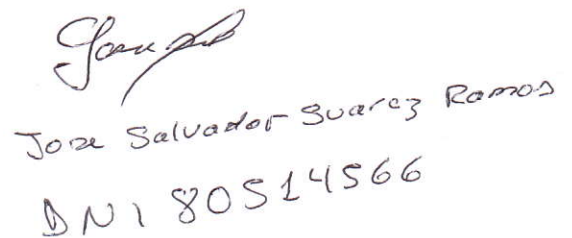 Jose Salvador Suarez Ramos
DNI 80514566